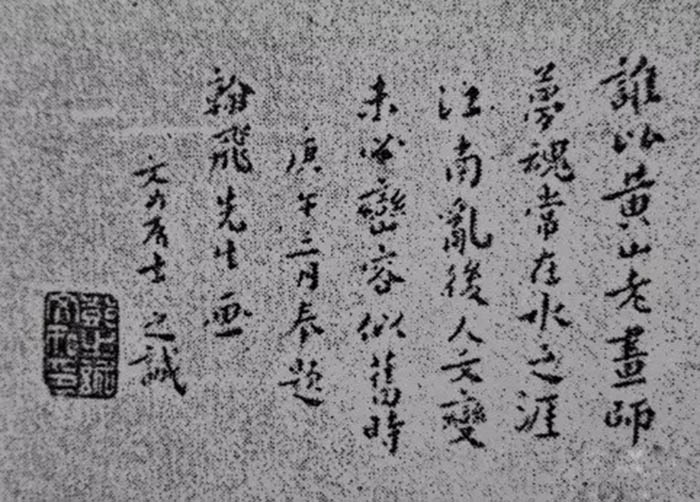 誰似黃山老畫師
夢魂常在水之涯
江南亂後人文變
未必巒容似舊時
庚午二月奉題
翰飛先生畫
文如居士之誠